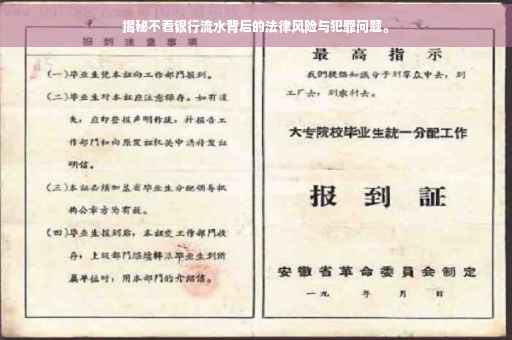 揭秘不看银行流水背后的法律风险与犯罪问题。
报到注意事项
(一)毕业生凭本证向工作部门报到。
(二)毕业生对本证应注意保存。如有遗
失,应即登报声明作废,并报告工
作部门和向原发证机关申请补发证
明信。
(三)本证必须加盖省毕业生分配领导机
构公章方为有效。
(四)毕业生报到后,本证交工作部门收
存;上级部门继续转派毕业生到所
属单位时,用本部门的介绍信。
最高指示
我们提倡知识分子到群众中去,到
工厂去,到农村去。
大专院校毕业生统一分配工作
报到証
安徽省革命委員会制定
一九 年 月 日